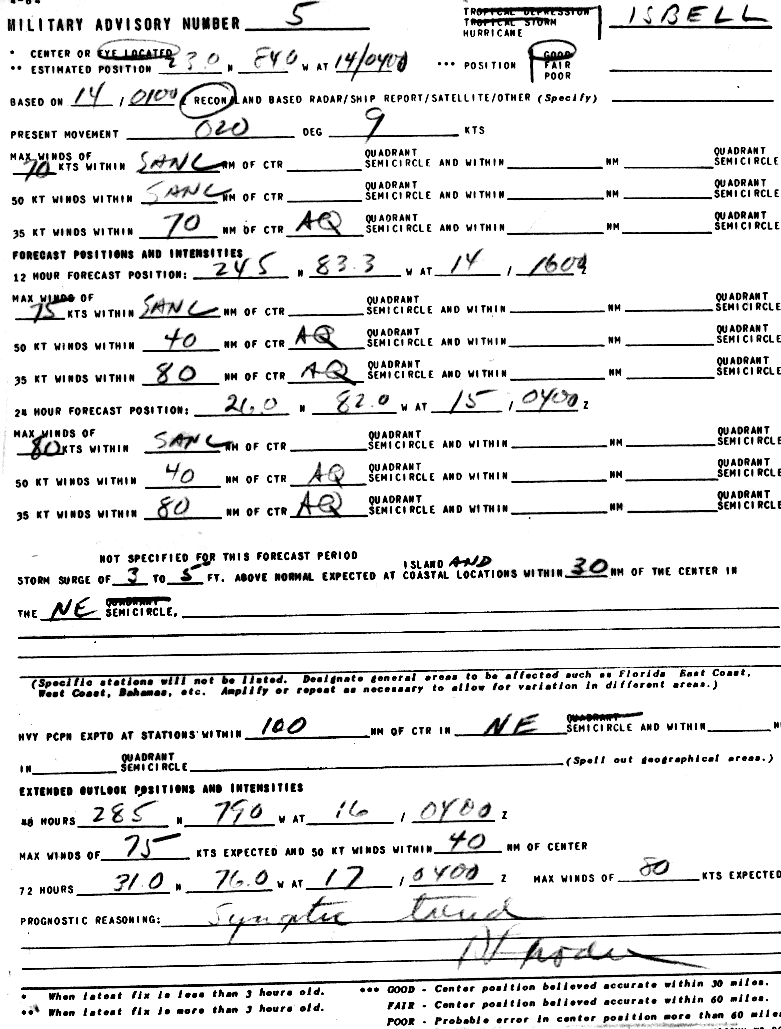 MILITARY ADVISORY NUMBER 5 TROPICAL DEPRESSION TROPICAL STORM HURRICANE ISBELL
* CENTER OR EYE LOCATED
** ESTIMATED POSITION 23.0 N 84.0 W AT 14/0400 *** POSITION GOOD FAIR POOR
BASED ON 14 / 0100 RECON LAND BASED RADAR/SHIP REPORT/SATELLITE/OTHER (Specify)
PRESENT MOVEMENT 020 DEG 9 KTS
MAX WINDS OF
70 KTS WITHIN SANC NM OF CTR QUADRANT SEMICIRCLE AND WITHIN NM QUADRANT SEMICIRCLE
50 KT WINDS WITHIN SANC NM OF CTR QUADRANT SEMICIRCLE AND WITHIN NM QUADRANT SEMICIRCLE
35 KT WINDS WITHIN 70 NM OF CTR AQ QUADRANT SEMICIRCLE AND WITHIN NM QUADRANT SEMICIRCLE
FORECAST POSITIONS AND INTENSITIES
12 HOUR FORECAST POSITION: 24.5 N 83.3 W AT 14 / 1600Z
MAX WINDS OF
75 KTS WITHIN SANC NM OF CTR QUADRANT SEMICIRCLE AND WITHIN NM QUADRANT SEMICIRCLE
50 KT WINDS WITHIN 40 NM OF CTR AQ QUADRANT SEMICIRCLE AND WITHIN NM QUADRANT SEMICIRCLE
35 KT WINDS WITHIN 80 NM OF CTR AQ QUADRANT SEMICIRCLE AND WITHIN NM QUADRANT SEMICIRCLE
24 HOUR FORECAST POSITION: 26.0 N 82.0 W AT 15 / 0400 Z
MAX WINDS OF
80 KTS WITHIN SANC NM OF CTR QUADRANT SEMICIRCLE AND WITHIN NM QUADRANT SEMICIRCLE
50 KT WINDS WITHIN 40 NM OF CTR AQ QUADRANT SEMICIRCLE AND WITHIN NM QUADRANT SEMICIRCLE
35 KT WINDS WITHIN 80 NM OF CTR AQ QUADRANT SEMICIRCLE AND WITHIN NM QUADRANT SEMICIRCLE
NOT SPECIFIED FOR THIS FORECAST PERIOD
STORM SURGE OF 3 TO 5 FT. ABOVE NORMAL EXPECTED AT ISLAND AND COASTAL LOCATIONS WITHIN 30 NM OF THE CENTER IN
THE NE QUADRANT SEMICIRCLE,
(Specific stations will not be listed. Designate general areas to be affected such as Florida East Coast,
West Coast, Bahamas, etc. Amplify or repeat as necessary to allow for variation in different areas.)
HVY PCPN EXPTD AT STATIONS WITHIN 100 NM OF CTR IN NE QUADRANT SEMICIRCLE AND WITHIN
IN QUADRANT SEMICIRCLE (Spell out geographical areas.)
EXTENDED OUTLOOK POSITIONS AND INTENSITIES
48 HOURS 285 N 790 W AT 16 / 0400 Z
MAX WINDS OF 75 KTS EXPECTED AND 50 KT WINDS WITHIN 40 NM OF CENTER
72 HOURS 31.0 N 76.0 W AT 17 / 0400 Z MAX WINDS OF 80 KTS EXPECTED
PROGNOSTIC REASONING: Synoptic trend
* When latest fix is less than 3 hours old. *** GOOD - Center position believed accurate within 30 miles.
** When latest fix is more than 3 hours old. FAIR - Center position believed accurate within 60 miles.
POOR - Probable error in center position more than 60 mile